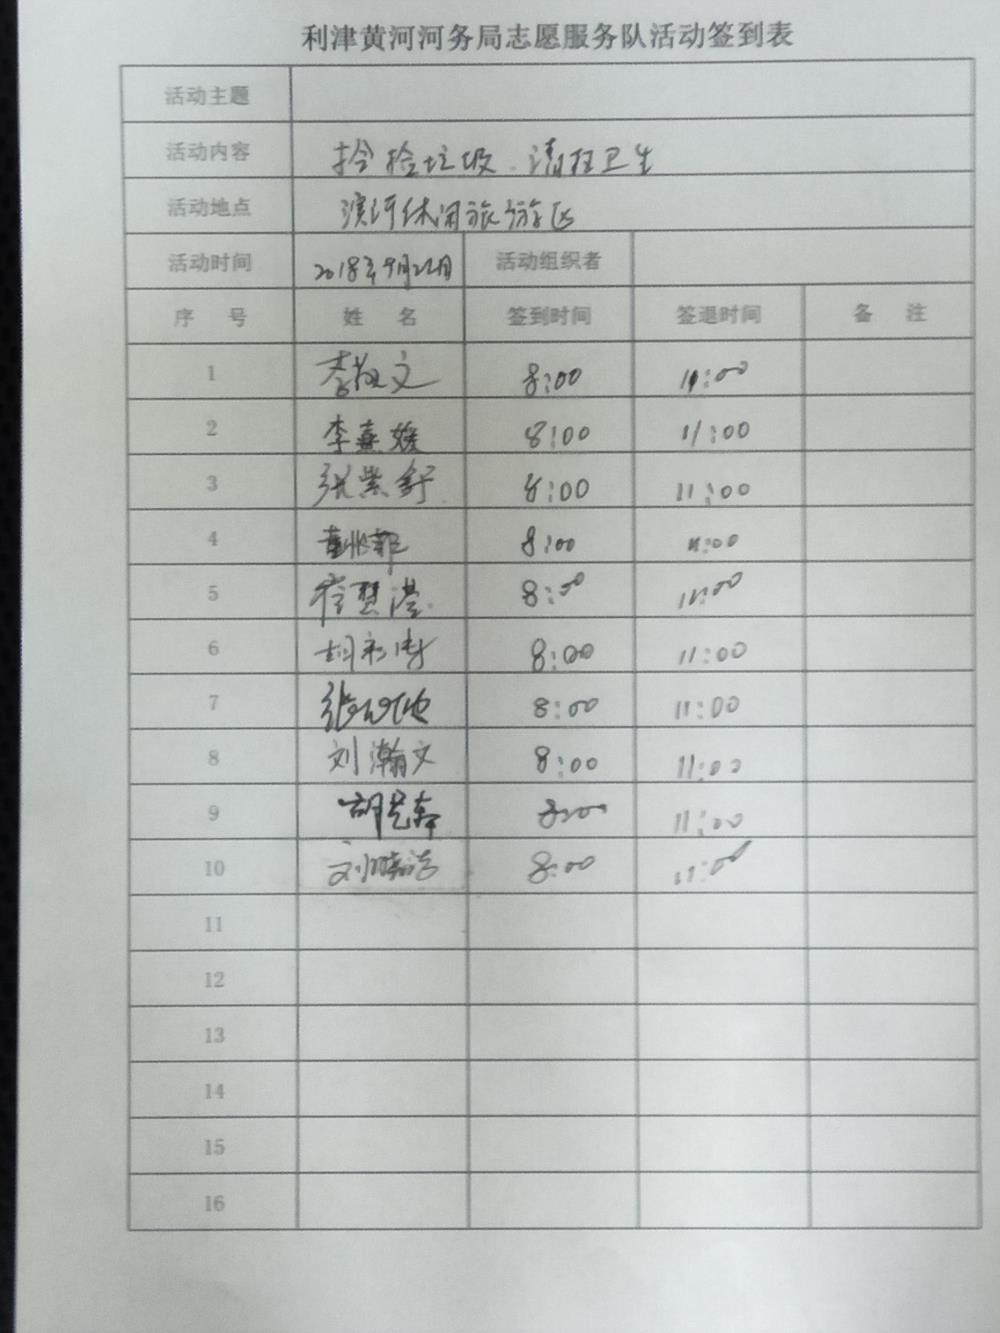 利津黄河河务局志愿服务队活动签到表
活动主题
活动内容 拾捡垃圾.清扫卫生
活动地点 滨河休闲旅游区
活动时间 2018年9月22日 活动组织者
序 号 姓 名 签到时间 签退时间 备 注
1 李敬文 8:00 11:00
2 李熹媛 8:00 11:00
3 张紫舒 8:00 11:00
4 8:00 11:00
5 崔慧滢 8:00 11:00
6 胡衫 8:00 11:00
7 张 8:00 11:00
8 刘瀚文 8:00 11:00
9 胡 8:00 11:00
10 刘晓洁 8:00 11:00
11
12
13
14
15
16